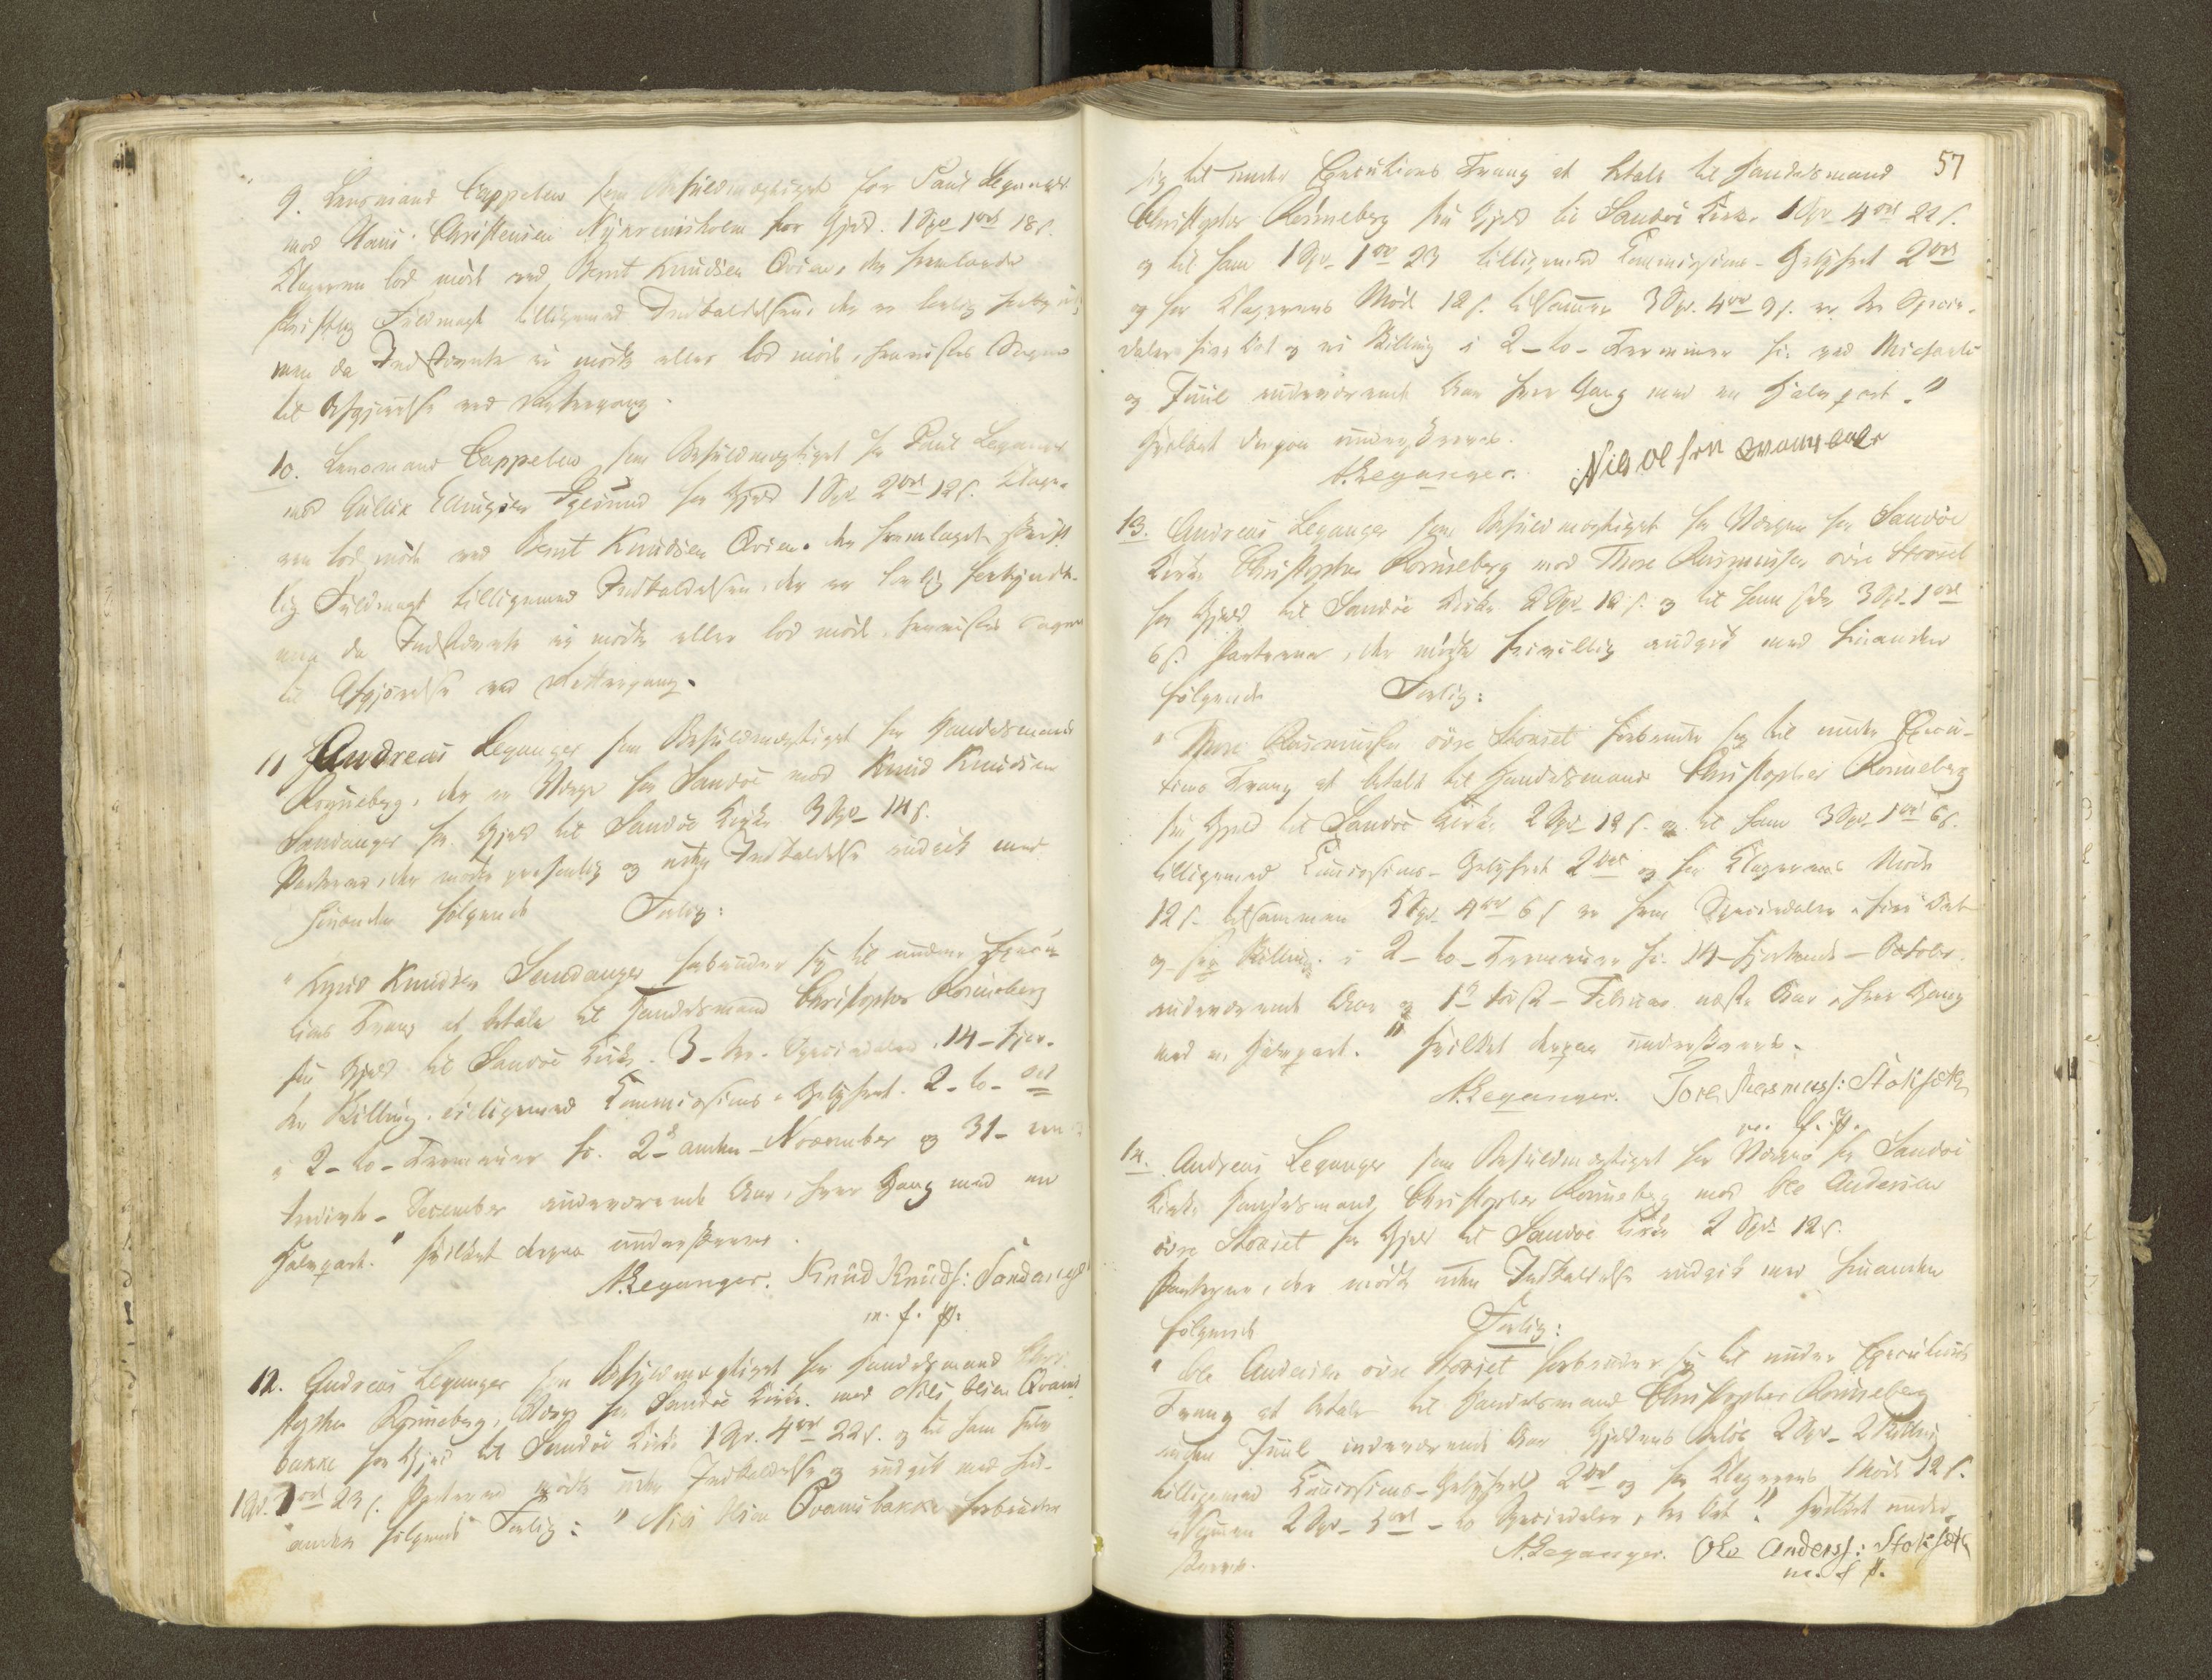 9. Lensmand Cappelen som Befuldmægtiget for Paul Leganger
mod Hans Christensen Nykreimsholm for Gjæld 1 Spd 1 ort 18 s.
Klageren lod møde ved Bernt Knudsen Ovien, der fremlagde
skriftlig Fuldmagt tilligemed Indkaldelsen, der er lovlig
men da Indstevnte ei mødte eller lod møde, henvistes Sagen
til Afgjørelse ved Rettergang.
10. Lensmand Cappelen som Befuldmægtiget for Paul Leganger
mod Gullik Ellingsen for Gjæld 1 Spd 2 ort 12 s. Klage-
ren lod møde ved Bernt Knudsen Ovien, der fremlagde skrift-
lig Fuldmagt tilligemed Indkaldelsen, der er lovlig forkyndt.
men da Indstevnte ei mødte eller lod møde, henvistes Sagen
til Afgjørelse ved Rettergang.
11 Andreas Leganger som Befuldmægtiget for Handelsmand
Rønneberg, der er Værge for Sandøe mod Knud Knudsen
Sandanger for Gjæld til Sandøe Kirke 3 Spd 14 s.
Parterne, der mødte personlig og uden Indkaldelse indgik med
hinanden følgende Forlig:
" Knud Knudsen Sandanger forbinder sig til under Execu-
tions Tvang at betale til Handelsmand Christopher Rønneberg
sin Gjæld til Sandøe Kirke. 3 - tre - Speciedaler, 14 - fjor-
ten Skilling. tilligemed Commissions-Gebyhret 2 - to - Ort
i 2 - to - Terminer so. 2d anden - November og 31 - en
tredivte - December indeværende Aar, hver Gang med en
Halvpart." Hvilket derpaa underskreves.
A. Leganger. Knud Knuds: Sandanger
m. f. P.
12. Andreas Leganger som Befuldmægtiget for Handelsmand Chri-
stopher Rønneberg, Værge for Sandøe Kirke. mod Nils Olsen Qvams-
bakke for Gjæld til Sandøe Kirke 1 Sp. 4 ort 22 s. og til ham selv
1 Sp. 1 ort 23 s. Parterne mødte uden Indkaldelse og indgik med hin-
anden følgende Forlig: " Nils Olsen Qvamsbakke forbinder
57
sig til under Executions Tvang at betale til Handelsmand
Christopher Rønneberg sin Gjæld til Sandøe Kirke 1 Spd 4 ort 22 s.
og til ham 1 Spd 1 ort 23 tilligemed Commissions-Gebyhret 2 ort
og for Klagerens Møde 12 s. tilsammen 3 Spd. 4 ort 9 s. er tre Specie-
daler fire Ort og ni Skilling i 2 - to - Terminer so. ved Michaeli
og Juul indeværende Aar hver Gang med en Halvpart."
Hvilket derpaa underskreves.
A. Leganger. Nils olsen
13. Andreas Leganger som Befuldmægtiget for Værgen for Sandøe
Kirke Christopher Rønneberg mod Thore Rasmussen øvre Stoxset
for Gjæld til Sandøe Kirke 2 Spd 12 s. og til ham selv 3 Spd 1 ort
6 s. Parterne, der mødte frivillig indgik med hinanden
følgende Forlig:
" Thore Rasmussen øvre Stoxset forbinder sig til under Execu-
tions Tvang at betale til Handelsmand Christopher Rønneberg
sin Gjæld til Sandøe Kirke 2 Spd 12 s. og til ham 3 Spd 1 ort 6 s.
tilligemed Comissions-Gebyhret 2 ort og for Klagerens Møde
12 s. tilsammen 5 Spd 4 ort 6 s er fem Speciedaler, fire Ort
og sex Skilling. i 2 - to - Terminer so. 14 - fjortende - October
indeværende Aar og 1ste første - Februar næste Aar, hver Gang
med en Halvpart." Hvilket derpaa underskreves.
A. Leganger. Tore Rasmuss: Stoksæth
m. f. P.
14. Andreas Leganger som Befuldmægtiget for Værge for Sandøe
Kirke Handelsmand Christopher Rønneberg mod Ole Andersen
øvre Stoxset for Gjæld til Sandøe Kirke 2 Spd 12 s.
Parterne, der mødte uden Indkaldelse indgik med hinanden
følgende Forlig:
" Ole Andersen øvre Stoxset forbinder sig til under Executions
Tvang at betale til Handelsmand Christopher Rønneberg
inden Juul indeværende Aar Gjældens Beløb 2 Spd - 2 Skilling
tilligemed Comissions-Gebyhret 2 ort og for Klagerens Møde 12 s.
tilsammen 2 Spd - 3 ort - to Speciedaler, tre Ort". Hvilket under-
skreves. A. Leganger. Ole Anderss: Stoksæth
m. f P.